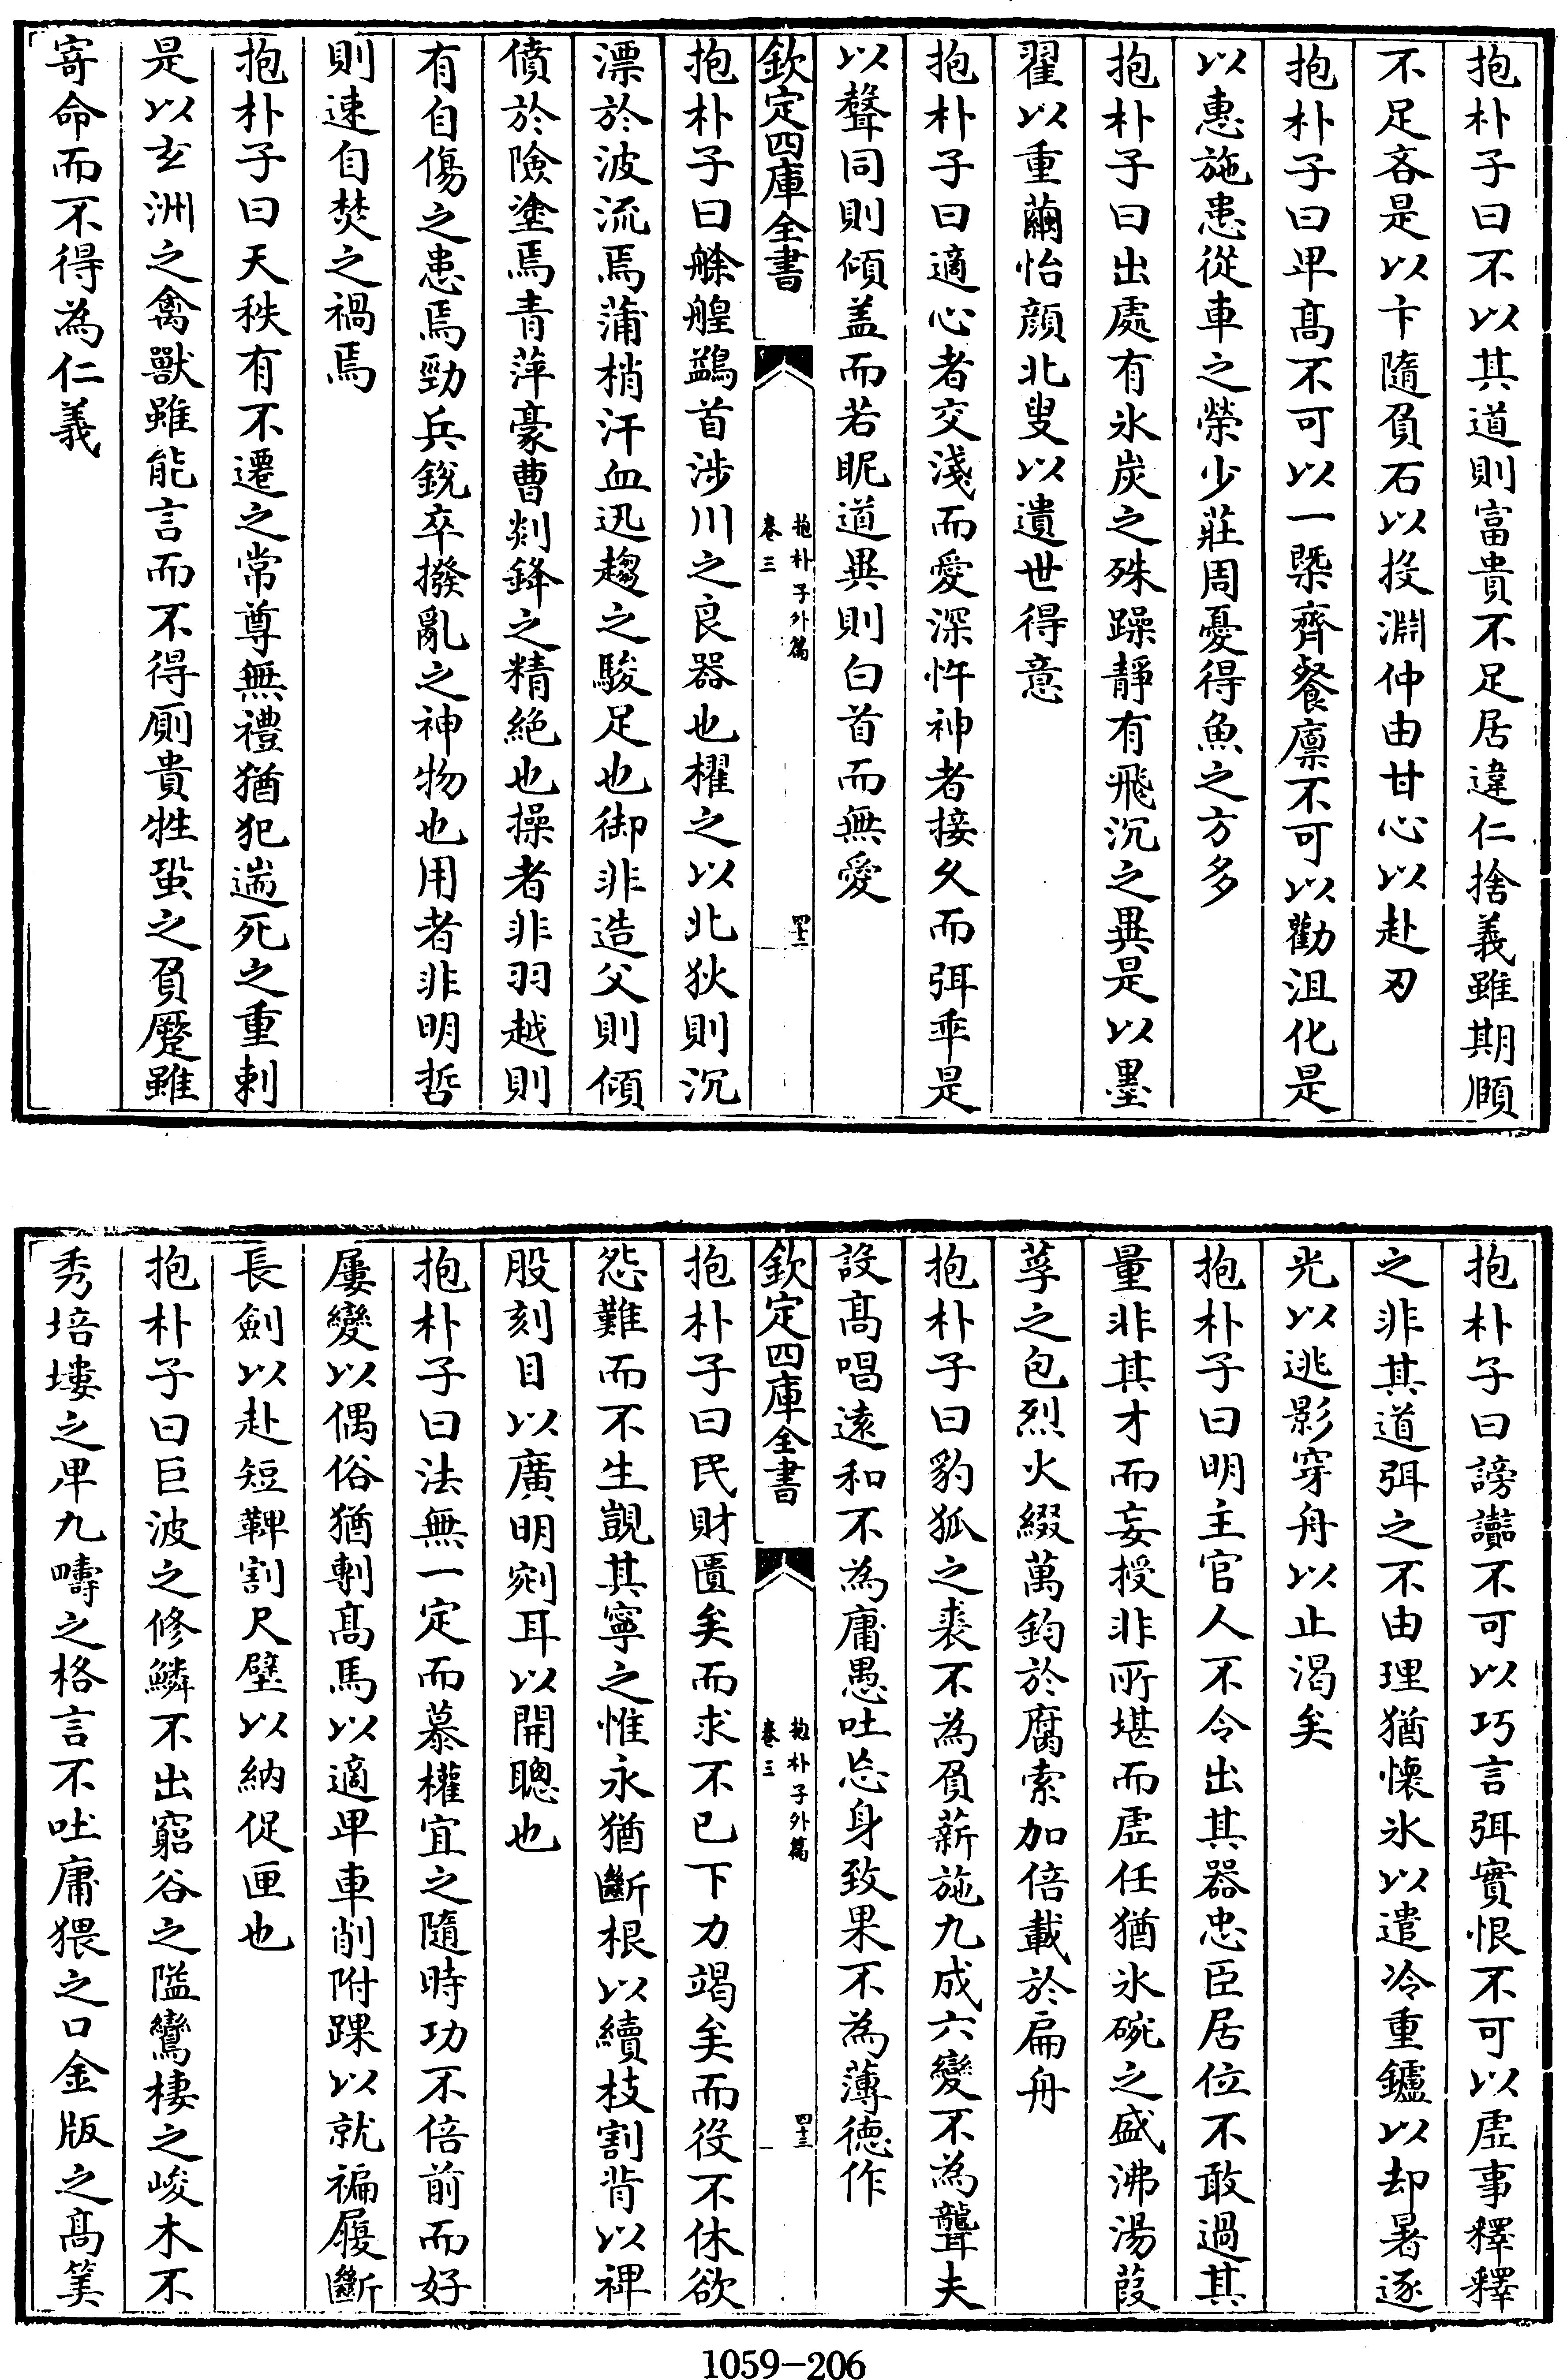 抱朴子曰不以其道則富貴不足居違仁捨義雖期頤
不足吝是以卞隨負石以投淵仲由甘心以赴刃
抱朴子曰卑髙不可以一槩齊餐廪不可以勸沮化是
以惠施患從車之榮少莊周憂得魚之方多
抱朴子曰出處有氷炭之殊躁靜有飛沉之異是以墨
翟以重繭怡顔北叟以遺世得意
抱朴子曰適心者交淺而愛深忤神者接久而弭乖是
以聲同則傾盖而若昵道異則白首而無愛
欽定四庫全書
抱朴子外篇
卷三
四十二
抱朴子曰艅艎鷁首涉川之良器也櫂之以北狄則沉
漂於波流焉蒲梢汗血迅趨之駿足也御非造父則傾
僨於險塗焉青萍豪曹剡鋒之精絶也操者非羽越則
有自傷之患焉勁兵銳卒撥亂之神物也用者非明哲
則速自焚之禍焉
抱朴子曰天秩有不遷之常尊無禮猶犯遄死之重刺
是以玄洲之禽獸雖能言而不得厠貴牲蛩之負蹷雖
寄命而不得為仁義
抱朴子曰謗讟不可以巧言弭實恨不可以虛事釋釋
之非其道弭之不由理猶懷氷以遣冷重鑪以却暑逐
光以逃影穿舟以止渴矣
抱朴子曰明主官人不令出其器忠臣居位不敢過其
量非其才而妄授非所堪而虛任猶氷碗之盛沸湯葭
莩之包烈火綴萬鈞於腐索加倍載於扁舟
抱朴子曰豹狐之裘不為負薪施九成六變不為聾夫
設髙唱遠和不為庸愚吐忘身致果不為薄德作
欽定四庫全書
抱朴子外篇
卷三
四十三
抱朴子曰民財匱矣而求不已下力竭矣而役不休欲
怨難而不生覬其寧之惟永猶斷根以續枝割背以裨
股刻目以廣明剜耳以開聰也
抱朴子曰法無一定而慕權宜之隨時功不倍前而好
屢變以偶俗猶剸髙馬以適卑車削附踝以就褊履斷
長劍以赴短鞞割尺璧以納促匣也
抱朴子曰巨波之修鱗不出窮谷之隘鸞棲之峻木不
秀培塿之卑九疇之格言不吐庸猥之口金版之髙筭
1059-206